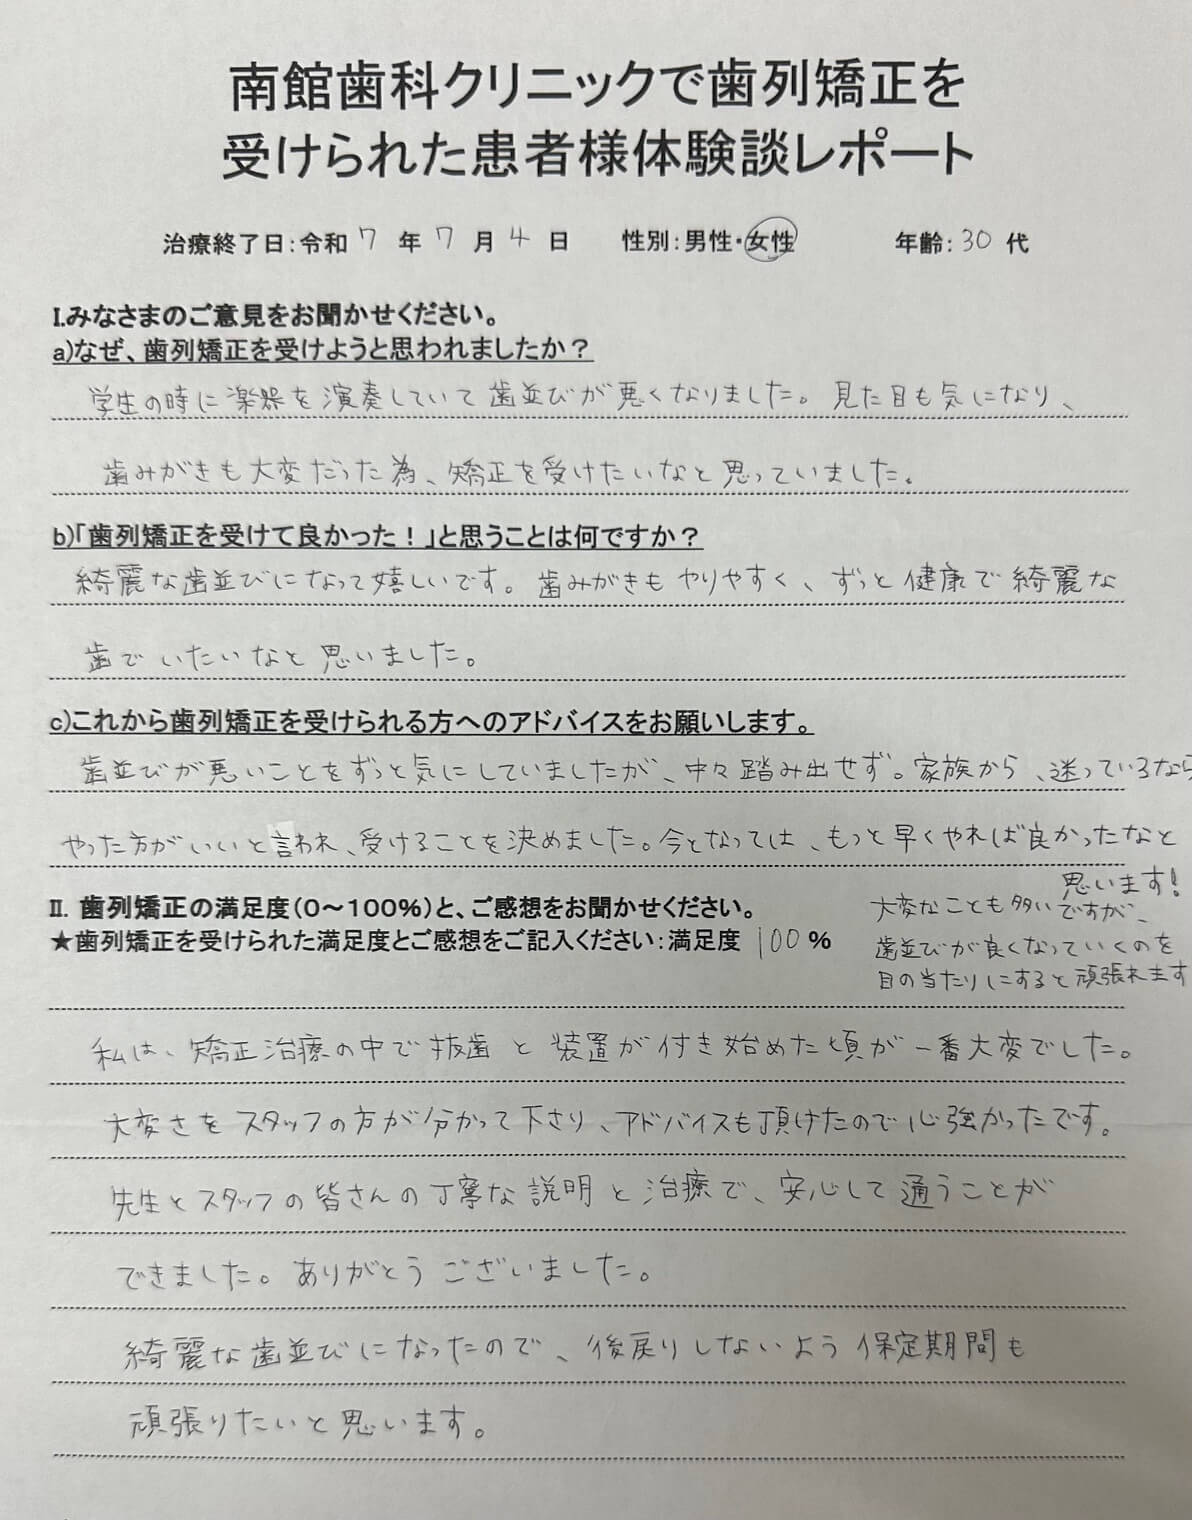 南館歯科クリニックで歯列矯正を
受けられた患者様体験談レポート
治療終了日:令和 7 年 7 月 4 日 性別:男性・女性 年齢: 30 代
I.みなさまのご意見をお聞かせください。
a)なぜ、歯列矯正を受けようと思われましたか？
学生の時に楽器を演奏していて歯並びが悪くなりました。見た目も気になり、
歯みがきも大変だった為、矯正を受けたいなと思っていました。
b)「歯列矯正を受けて良かった！」と思うことは何ですか？
綺麗な歯並びになって嬉しいです。歯みがきもやりやすく、ずっと健康で綺麗な
歯でいたいなと思いました。
c)これから歯列矯正を受けられる方へのアドバイスをお願いします。
歯並びが悪いことをずっと気にしていましたが、中々踏み出せず。家族から、迷っているなら
やった方がいいと言われ、受けることを決めました。今となっては、もっと早くやれば良かったなと
思います!
大変なことも多いですが、
歯並びが良くなっていくのを
目の当たりにすると頑張れます
II. 歯列矯正の満足度(0～100%)と、ご感想をお聞かせください。
★歯列矯正を受けられた満足度とご感想をご記入ください:満足度 100 %
私は、矯正治療の中で抜歯と装置が付き始めた頃が一番大変でした。
大変さをスタッフの方が分かって下さり、アドバイスも頂けたので心強かったです。
先生とスタッフの皆さんの丁寧な説明と治療で、安心して通うことが
できました。ありがとうございました。
綺麗な歯並びになったので、後戻りしないよう保定期間も
頑張りたいと思います。